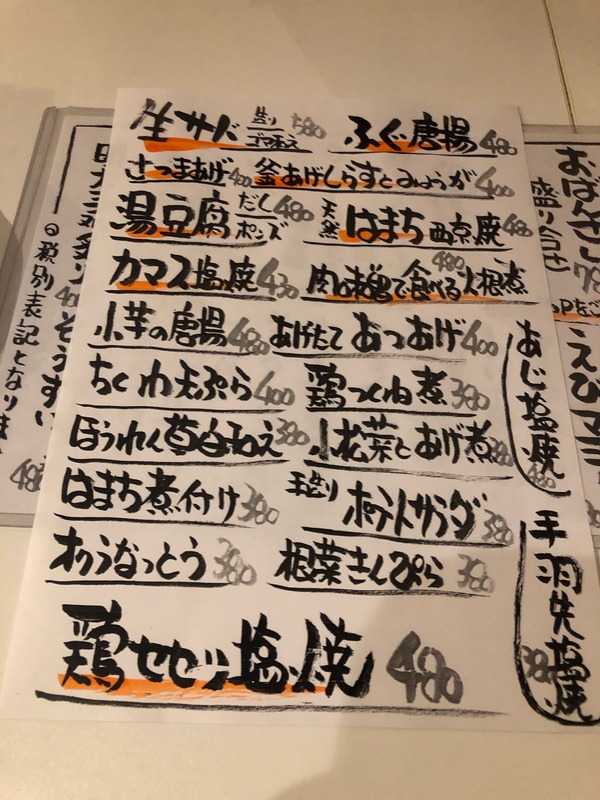 生サバ 造り ゴマ和え 580
ふぐ唐揚 480
さつまあげ 400
釜あげしらすとみょうが 400
湯豆腐 だし ポンズ 480
天然 はまち西京焼 480
カマス塩焼 430
肉味噌で食べる大根煮 480
小芋の唐揚 480
あげたて あつあげ 400
ちくわ天ぷら 400
鶏つくね煮 380
ほうれん草白和え 380
小松菜とあげ煮 380
はまち煮付け 380
手造り ポテトサラダ 380
オクラなっとう 380
根菜きんぴら 380
鶏セセリ塩焼 480
あじ塩焼 480
手羽先塩焼 380
おばんざい
盛り合せ 78
えびマヨ
ぞうすい
◎税別表記となりま
48